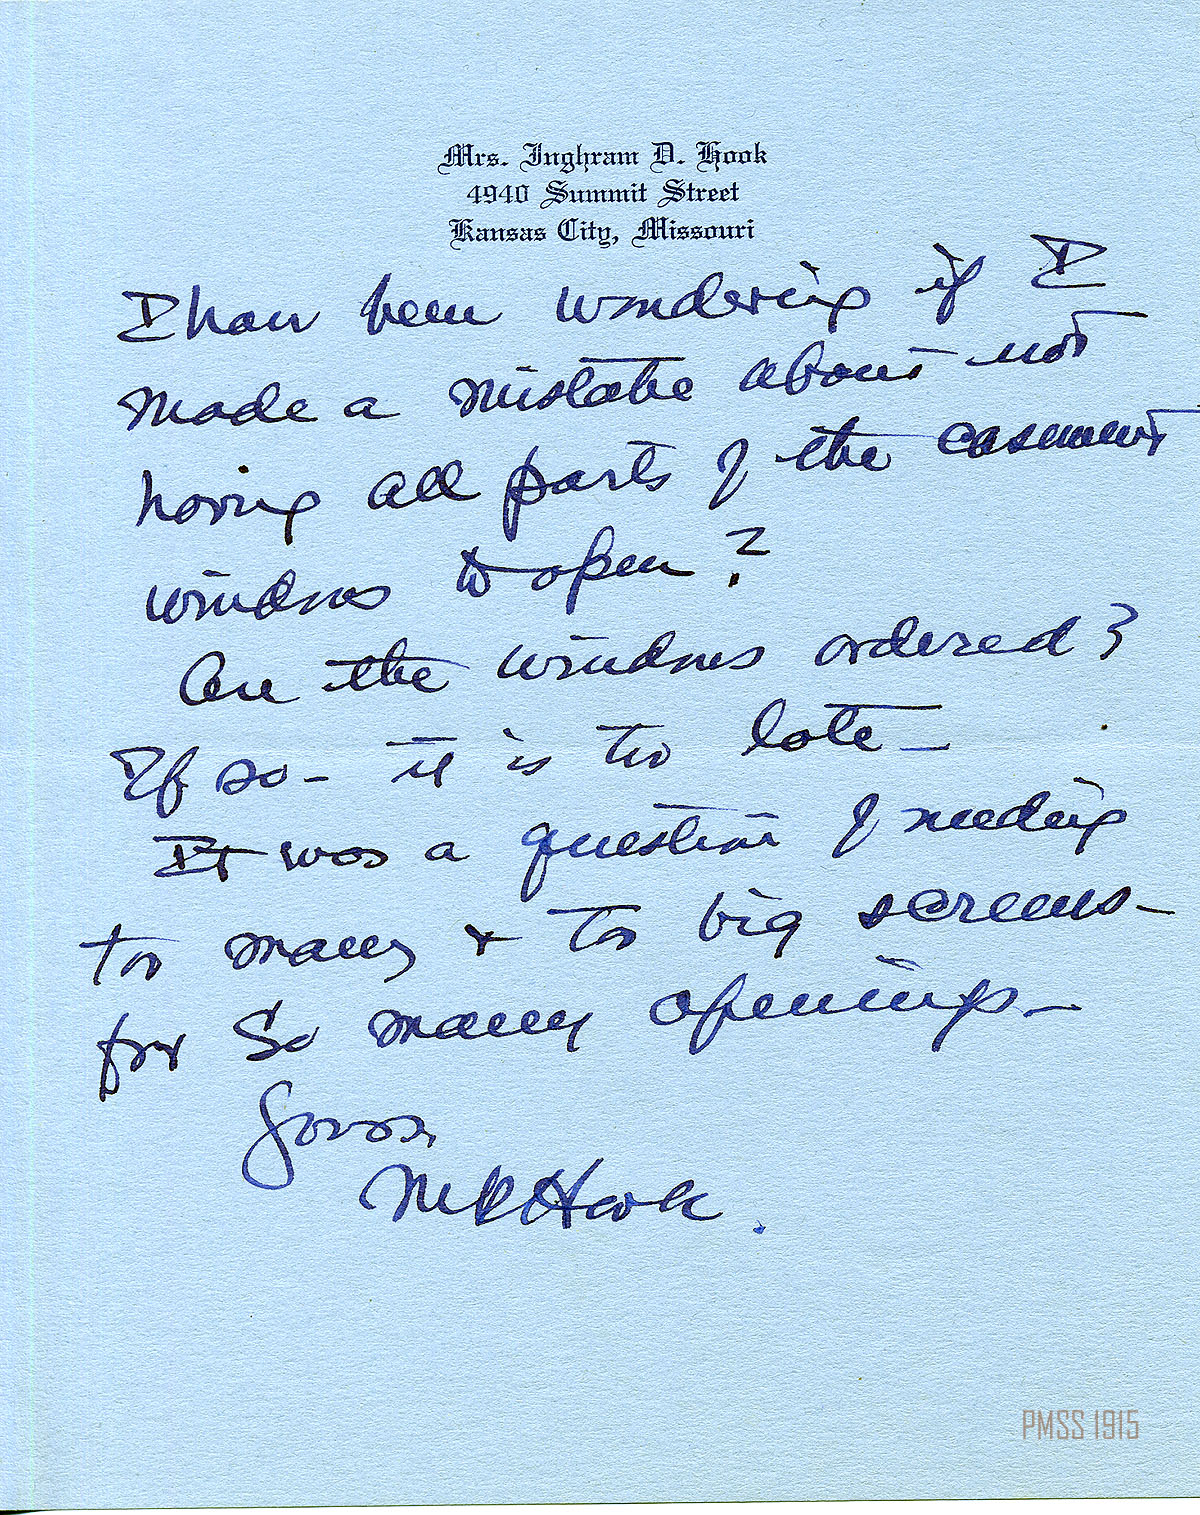 Mrs. Inghram D. Hook
4940 Summit Street
Kansas City, Missouri
I have been wondering if I
made a mistake about not
having all parts of the casement
windows to open?
Are the windows ordered?
If so - it is too late -
It was a question of needing
too many & too big screens -
for so many openings -
Yours,
MR Hook.
PMSS 1915